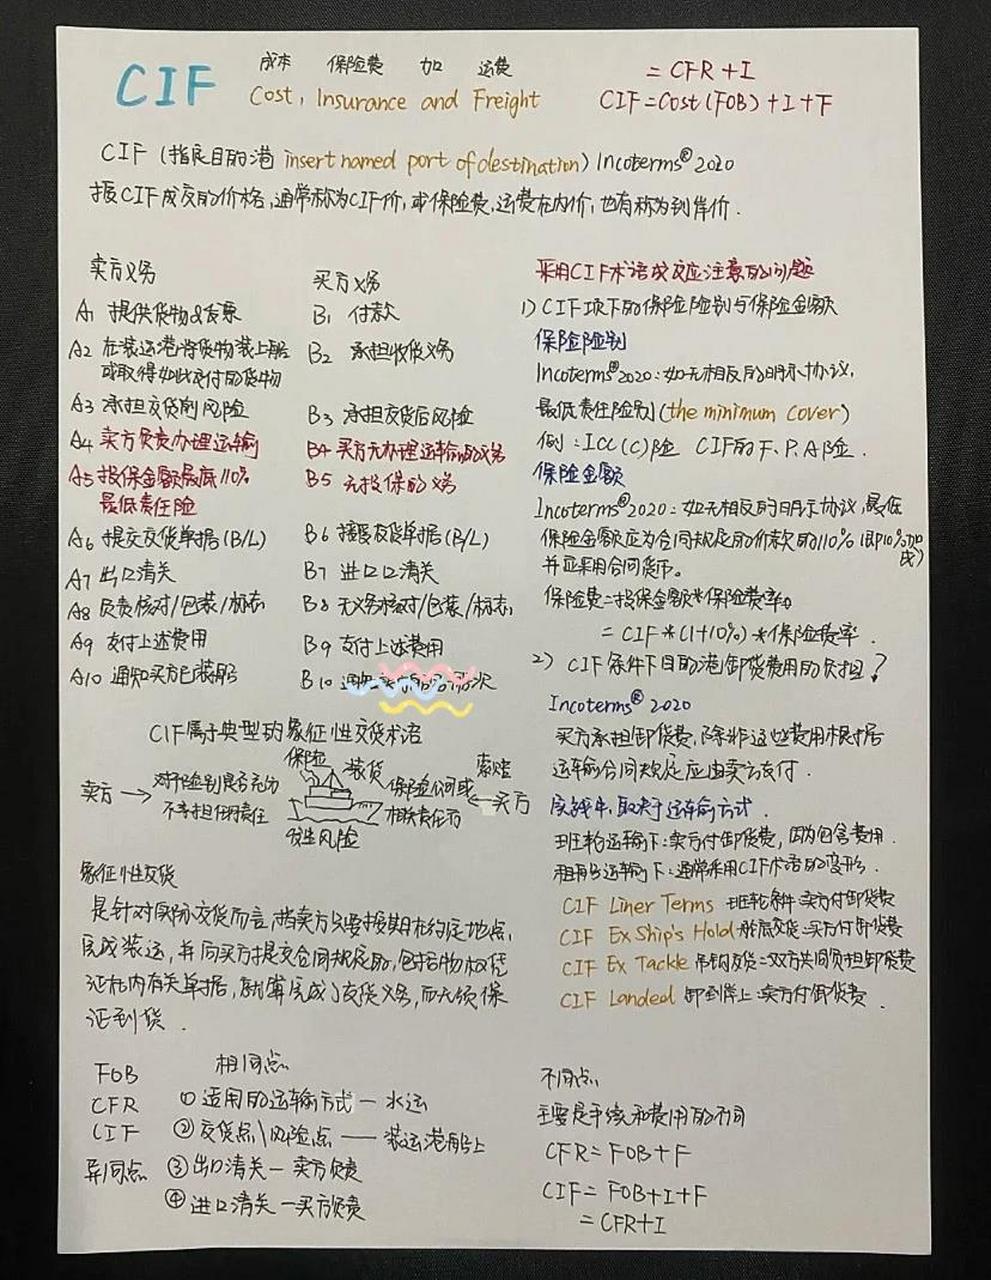 CIF
成本 保险费 加 运费
Cost, Insurance and Freight
= CFR + I
CIF = Cost (FOB) + I + F
CIF (指定目的港 insert named port of destination) Incoterms® 2020
按CIF成交的价格,通常称为CIF价,或保险费,运费在内价,也有称为到岸价.
卖方义务
A1 提供货物&发票
A2 在装运港将货物装上船
或取得如此交付的货物
A3 承担交货前风险
A4 卖方负责办理运输
A5 投保金额最底110%
最低责任险
A6 提交交货单据(B/L)
A7 出口清关
A8 负责核对/包装/标志
A9 支付上述费用
A10 通知买方已装船
买方义务
B1 付款
B2 承担收货义务
B3 承担交货后风险
B4 买方无办理运输的义务
B5 无投保的义务
B6 接受交货单据(B/L)
B7 进口清关
B8 无义务核对/包装/标志
B9 支付上述费用
B10
CIF属于典型的象征性交货术语
卖方 → 对于险别是否充分
不承担任何责任
保险
装货
发生风险
保险公司或
相关责任方
索赔
← 买方
象征性交货
是针对实际交货而言,指卖方只要按期在约定地点,
完成装运,并向买方提交合同规定的,包括物权凭
证在内有关单据,就算完成了交货义务,而无须保
证到货.
采用CIF术语成交应注意的问题
1) CIF项下的保险险别与保险金额
保险险别
Incoterms®2020:如无相反的明示协议,
最低责任险别(the minimum cover)
例:ICC(C)险 CIF的F.P.A险.
保险金额
Incoterms®2020:如无相反的明示协议,最低
保险金额应为合同规定的价款的110%(即10%加成)
并应采用合同货币。
保险费=投保金额*保险费率
= CIF*(1+10%)*保险费率.
2) CIF条件下目的港卸货费用的负担?
Incoterms® 2020
买方承担卸货费,除非这些费用根据
运输合同规定应由卖方支付.
实践中,取决于运输方式.
班轮运输下:卖方付卸货费,因为包含费用.
租船运输下:通常采用CIF术语的变形.
CIF Liner Terms 班轮条件:卖方付卸货费
CIF Ex Ship's Hold 舱底交货:买方付卸货费
CIF Ex Tackle 吊钩交货:双方共同负担卸货费
CIF Landed 卸到岸上:卖方付卸货费.
FOB
CFR
CIF
异同点
相同点
① 适用的运输方式 — 水运
② 交货点\风险点 — 装运港船上
③ 出口清关 — 卖方负责
④ 进口清关 — 买方负责
不同点
主要是手续和费用的不同
CFR = FOB + F
CIF = FOB + I + F
= CFR + I